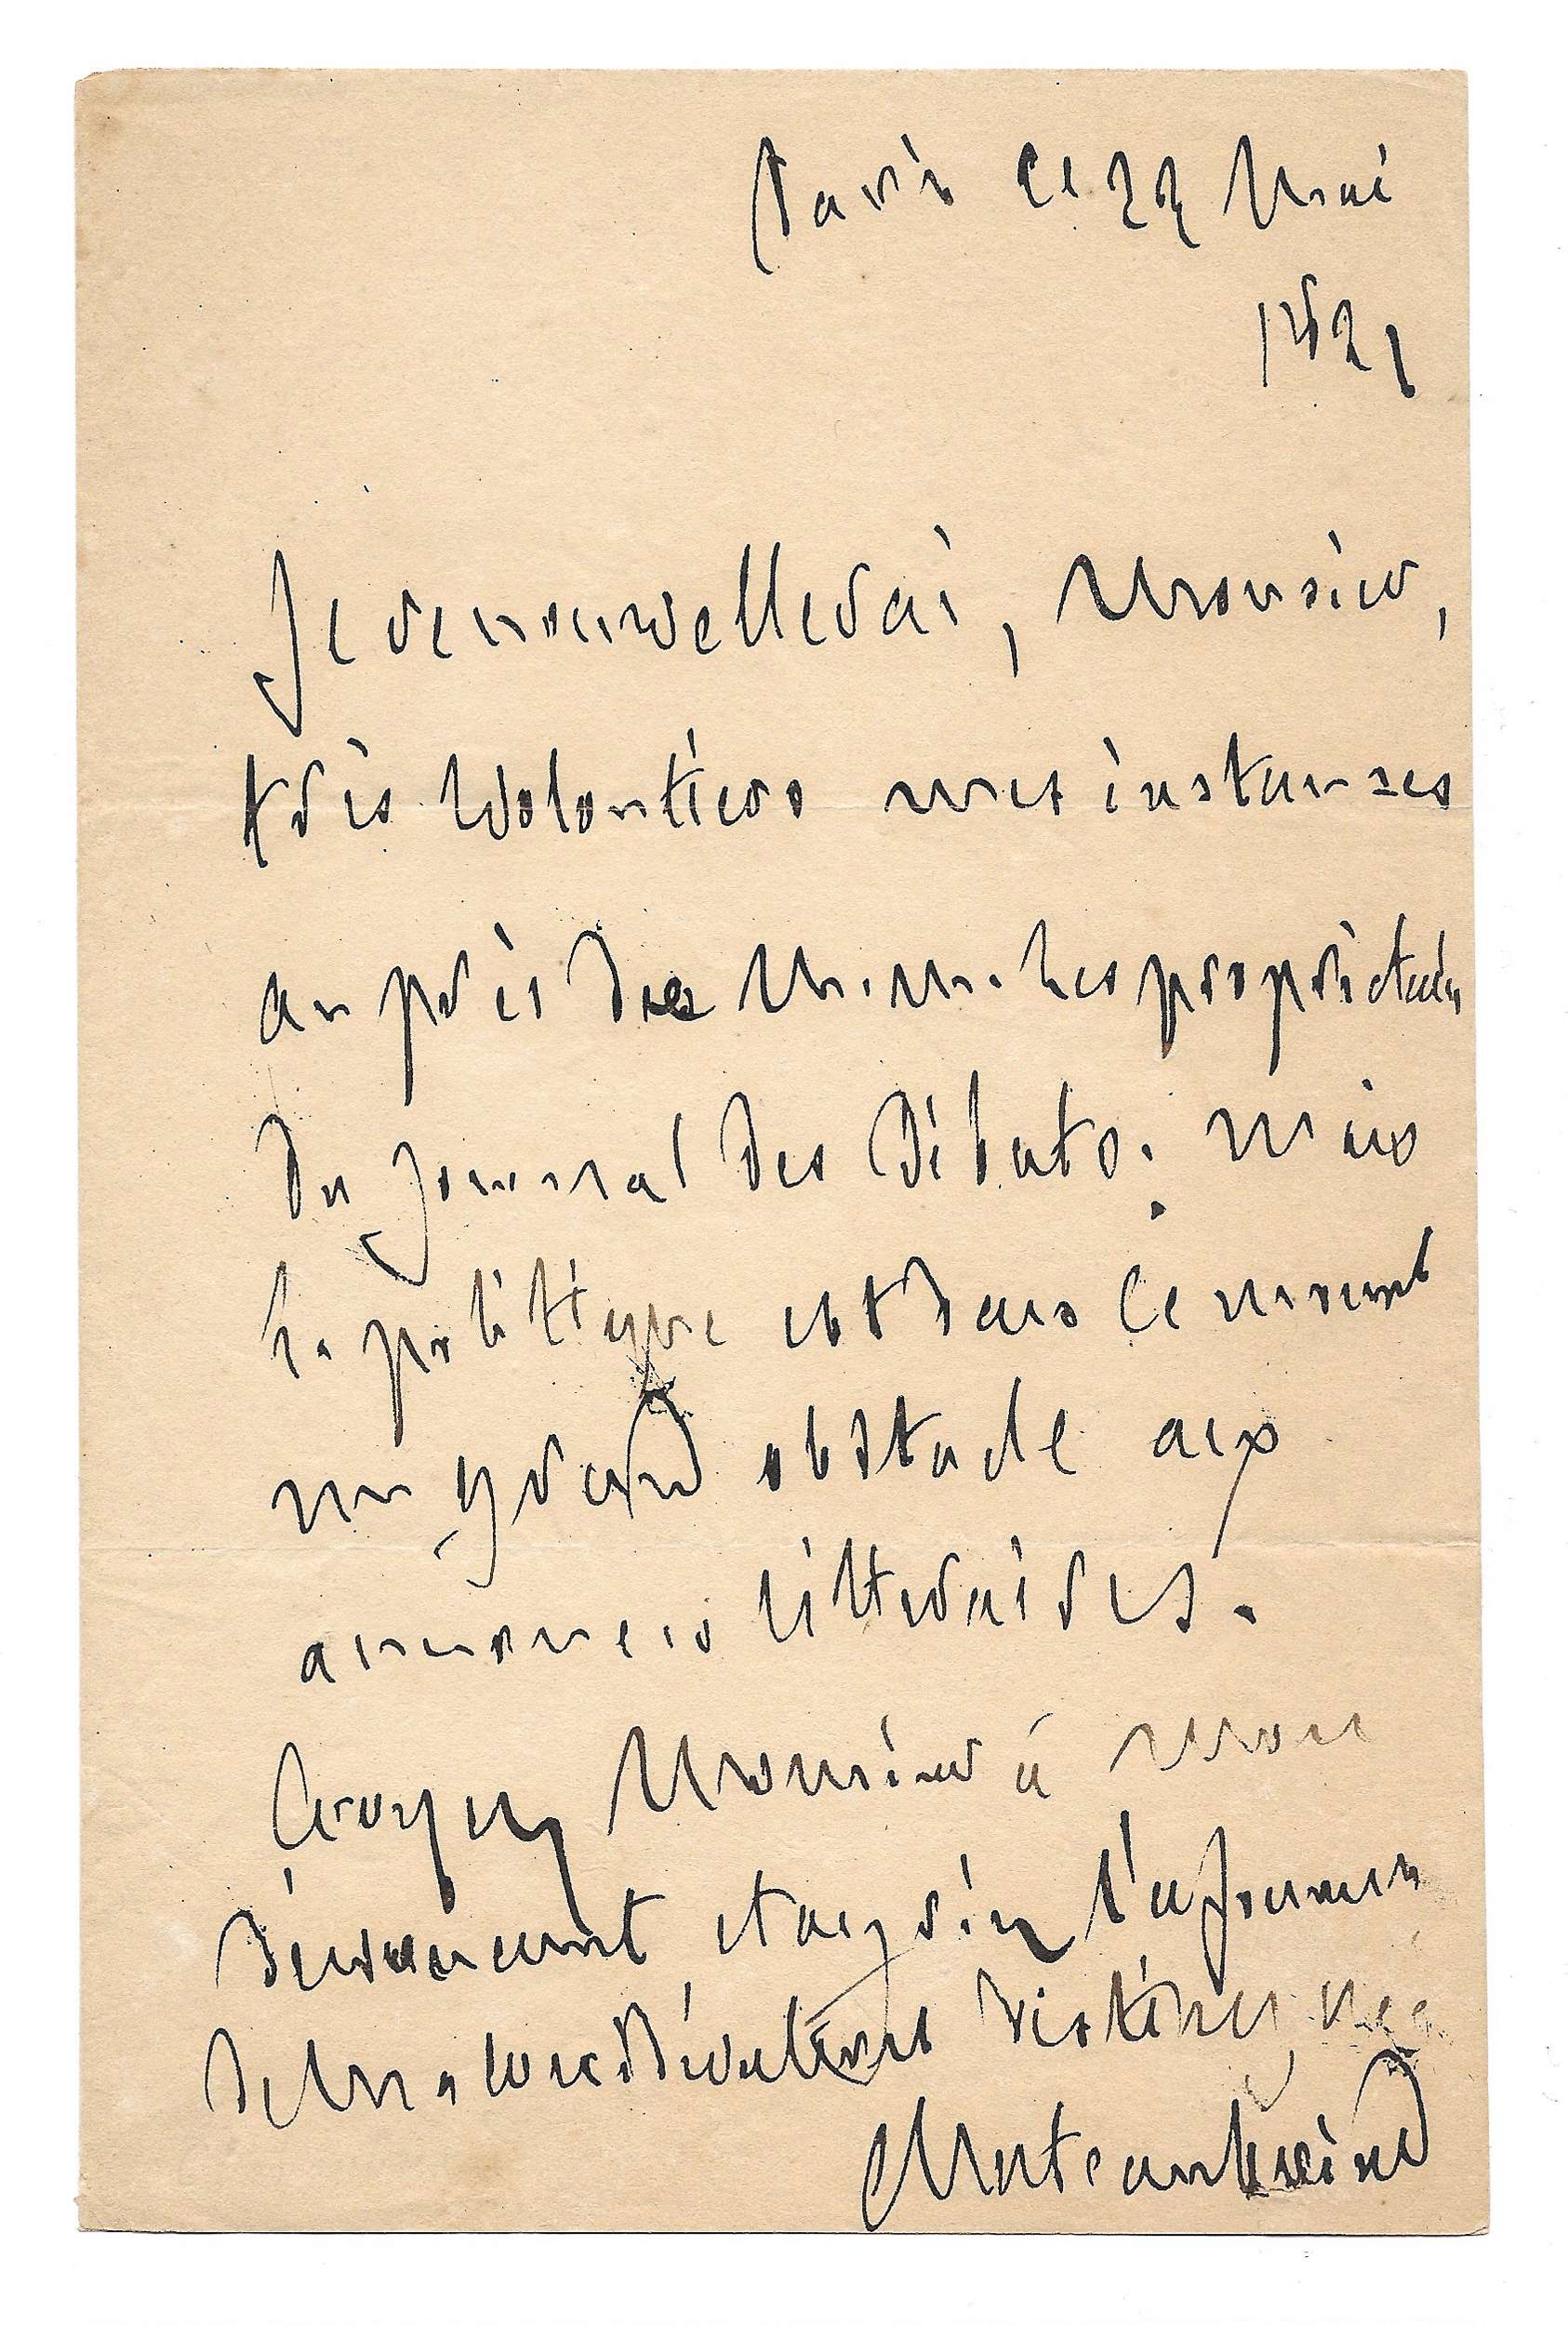 Paris ce 22 Mai
1821
Je renouvellerai, Monsieur,
très volontiers mes instances
auprès de M.M. les propriétaires
du journal des Débats. mais
la politique est dans ce moment
un grand obstacle aux
annonces littéraires.
Croyez Monsieur à mon
dévouement, et agréez l'assurance
de ma considération distinguée
Chateaubriand